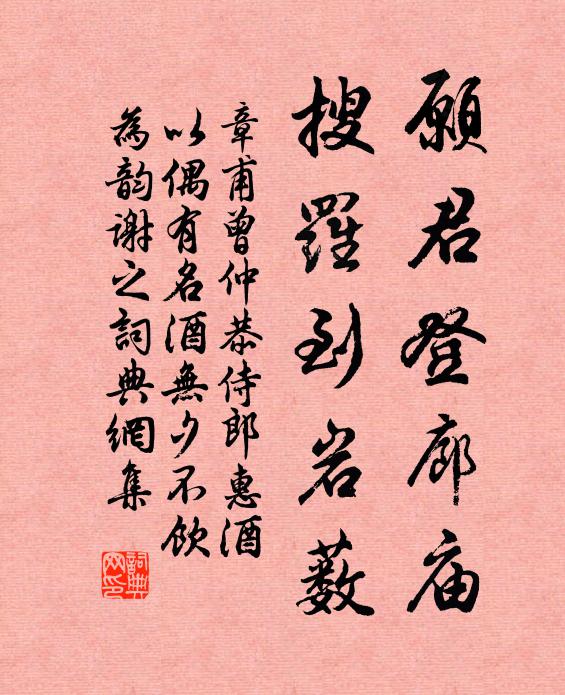 願君登廊庙
搜羅到岩薮
章甫曾仲恭侍郎惠酒
以偶有名酒無夕不飲
為韵谢之詞典網集
詞典网印